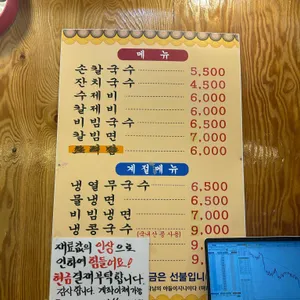 메 뉴
손 칼 국 수 5,500
잔 치 국 수 4,500
수 제 비 6,000
칼 제 비 6,000
비 빔 국 수 6,500
칼 빔 면 7,000
6,000
계 절 메 뉴
냉 열 무 국 수 6,500
물 냉 면 6,500
비 빔 냉 면 7,000
냉 콩 국 수 (국내산 콩 사용) 9,000
9,000
재료값의 인상으로
인하여 힘들어요!
현금결제 부탁합니다.
감사합니다. 계좌이체가능
금은 선불입니